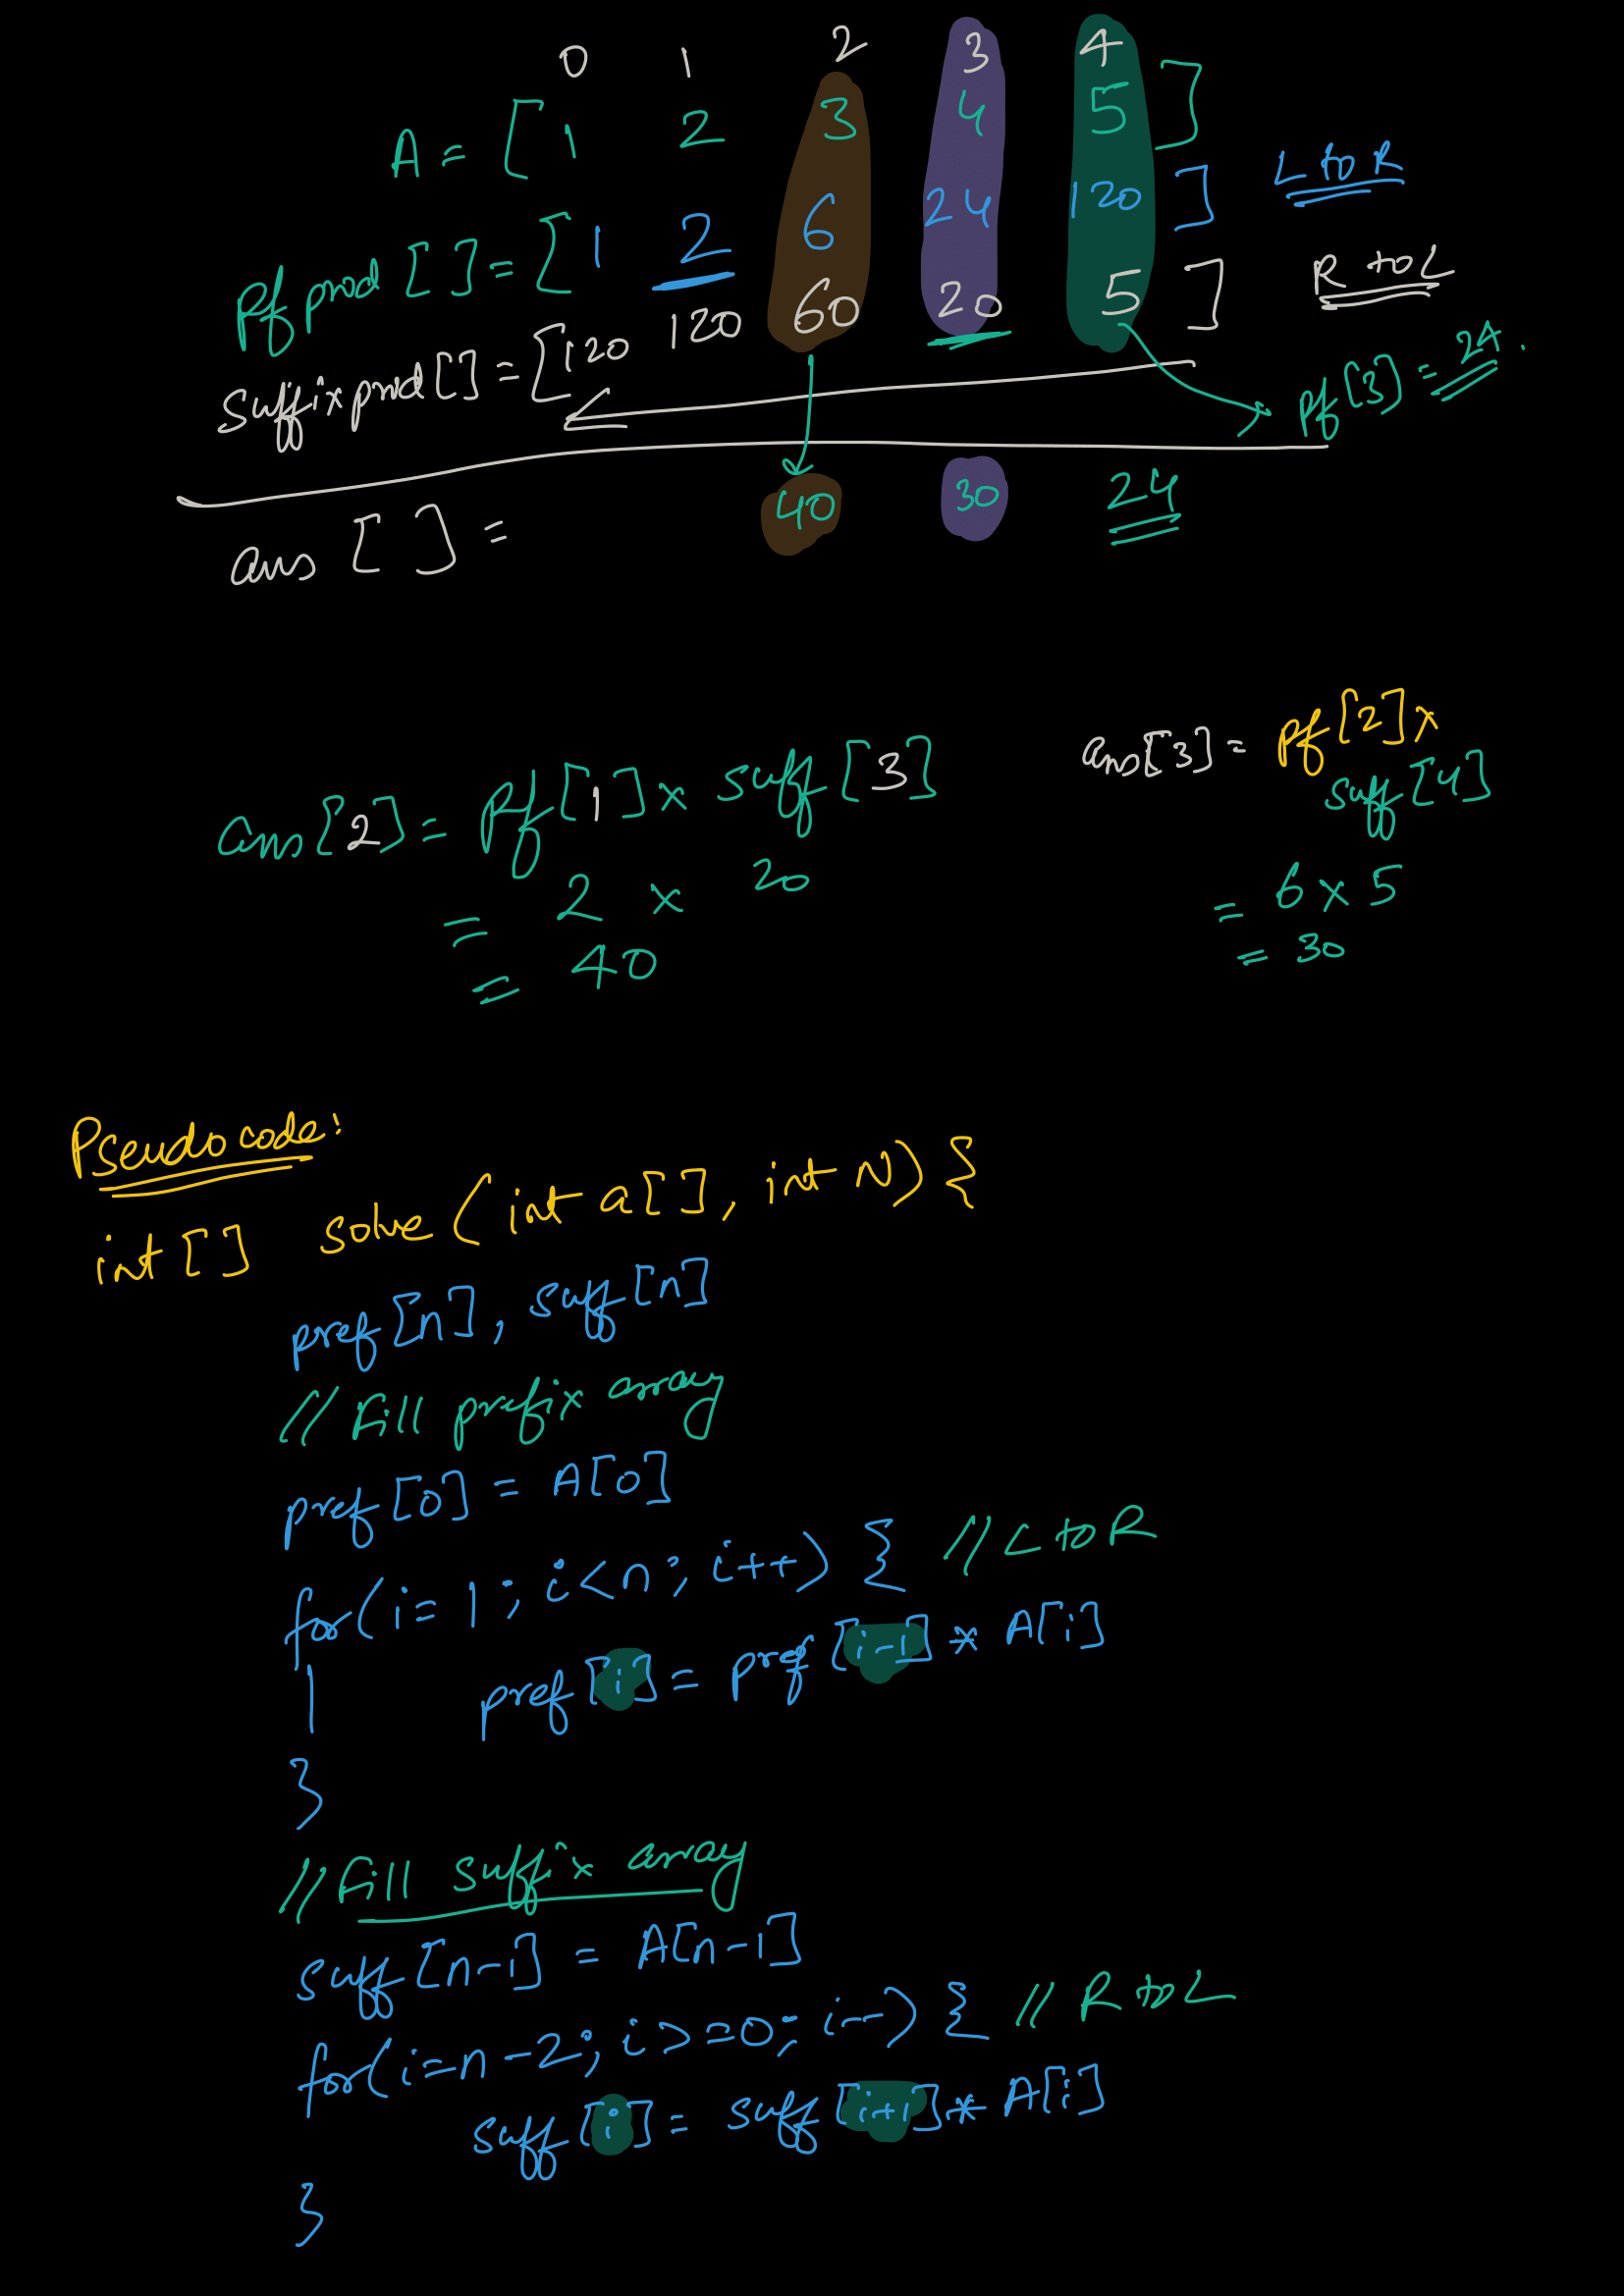 0 1 2 3 4
A = [ 1 2 3 4 5 ]
Pf prod [ ] = [ 1 2 6 24 120 ] L to R
Suffix prod [ ] = [ 120 120 60 20 5 ] R to L
pf [3] = 24.
ans [ ] = 40 30 24
ans[2] = Pf[1] x suff[3]
= 2 x 20
= 40
ans[3] = pf[2] x
suff[4]
= 6 x 5
= 30
Pseudocode:
int [ ] solve ( int a[ ], int N) {
pref[n], suff[n]
// Fill prefix array
pref[0] = A[0]
for(i=1; i<n; i++) { // L to R
pref[i] = pref[i-1] * A[i]
}
// Fill suffix array
suff[n-1] = A[n-1]
for(i=n-2; i>=0; i--) { // R to L
suff[i] = suff[i+1] * A[i]
}